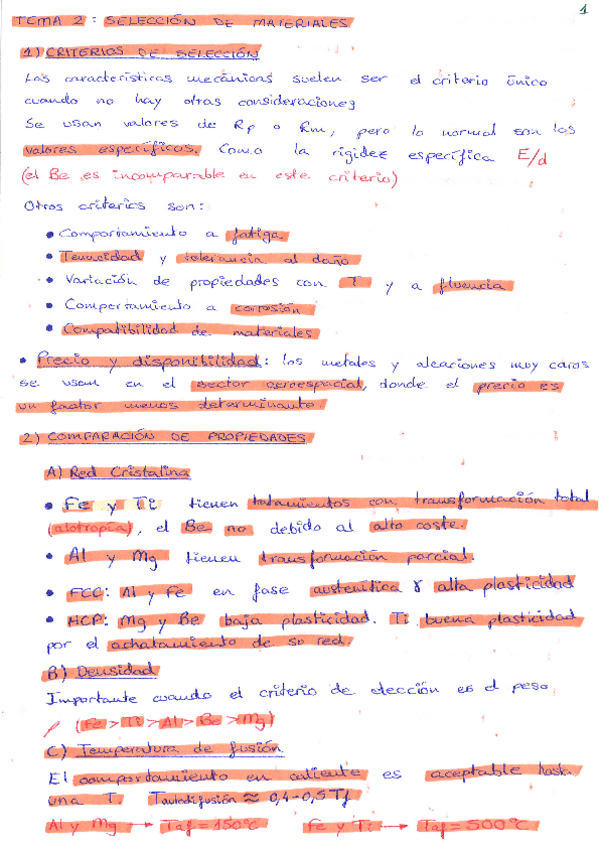 1
TEMA 2: SELECCIÓN DE MATERIALES
1) CRITERIOS DE SELECCIÓN
Las características mecánicas suelen ser el criterio único
cuando no hay otras consideraciones
Se usan valores de Rp o Rm, pero lo normal son los
valores específicos. Como la rigidez específica E/d
(el Be es incomparable en este criterio)
Otros criterios son:
• Comportamiento a fatiga
• Tenacidad y tolerancia al daño
• Variación de propiedades con T y a fluencia
• Comportamiento a corrosión
• Compatibilidad de materiales
• Precio y disponibilidad: los metales y aleaciones muy caros
se usan en el sector aeroespacial, donde el precio es
un factor menos determinante.
2) COMPARACIÓN DE PROPIEDADES
A) Red Cristalina
• Fe y Ti tienen tratamientos con transformación total
(alotropía), el Be no debido al alto coste.
• Al y Mg tienen transformación parcial.
• FCC: Al y Fe en fase austenítica γ alta plasticidad
• HCP: Mg y Be baja plasticidad. Ti buena plasticidad
por el achatamiento de su red.
B) Densidad
Importante cuando el criterio de elección es el peso
ρ (Fe > Ti > Al > Be > Mg)
C) Temperatura de fusión
El comportamiento en caliente es aceptable hasta
una T. Tautodifusión ≈ 0,4-0,5 Tf
Al y Mg → Taf = 150ºC Fe y Ti → Taf = 500ºC